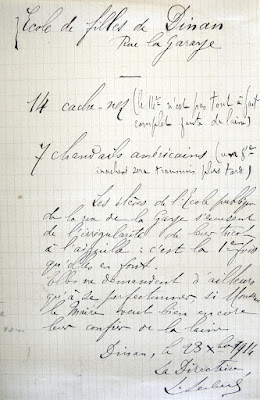 Ecole de filles de Dinan
Rue la Garaye
14 cache-nez (le 14e n'est pas tout à fait
complet faute de laine)
7 chandails américains (un 8e
sera transmis plus tard)
Les élèves de l'Ecole publique
de la rue de la Garaye s'excusent
de l'irrégularité de leur tricot
à l'aiguille : c'est la 1ère fois
qu'elles en font.
Elles ne demandent d'ailleurs
qu'à se perfectionner, si Monsieur
le Maire veut bien encore
leur confier de la laine
Dinan, le 23 Xbre 1914
La Directrice,